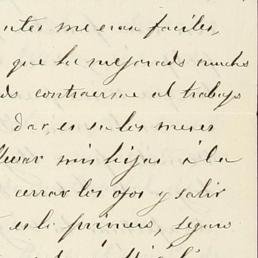 ntes me eran faciles,
que ha mejorado mucho
do contraerme al trabajo
dar, es sa los meses
llevar mis hijas á la
cerrar los ojos y salir
es lo primero, seguro